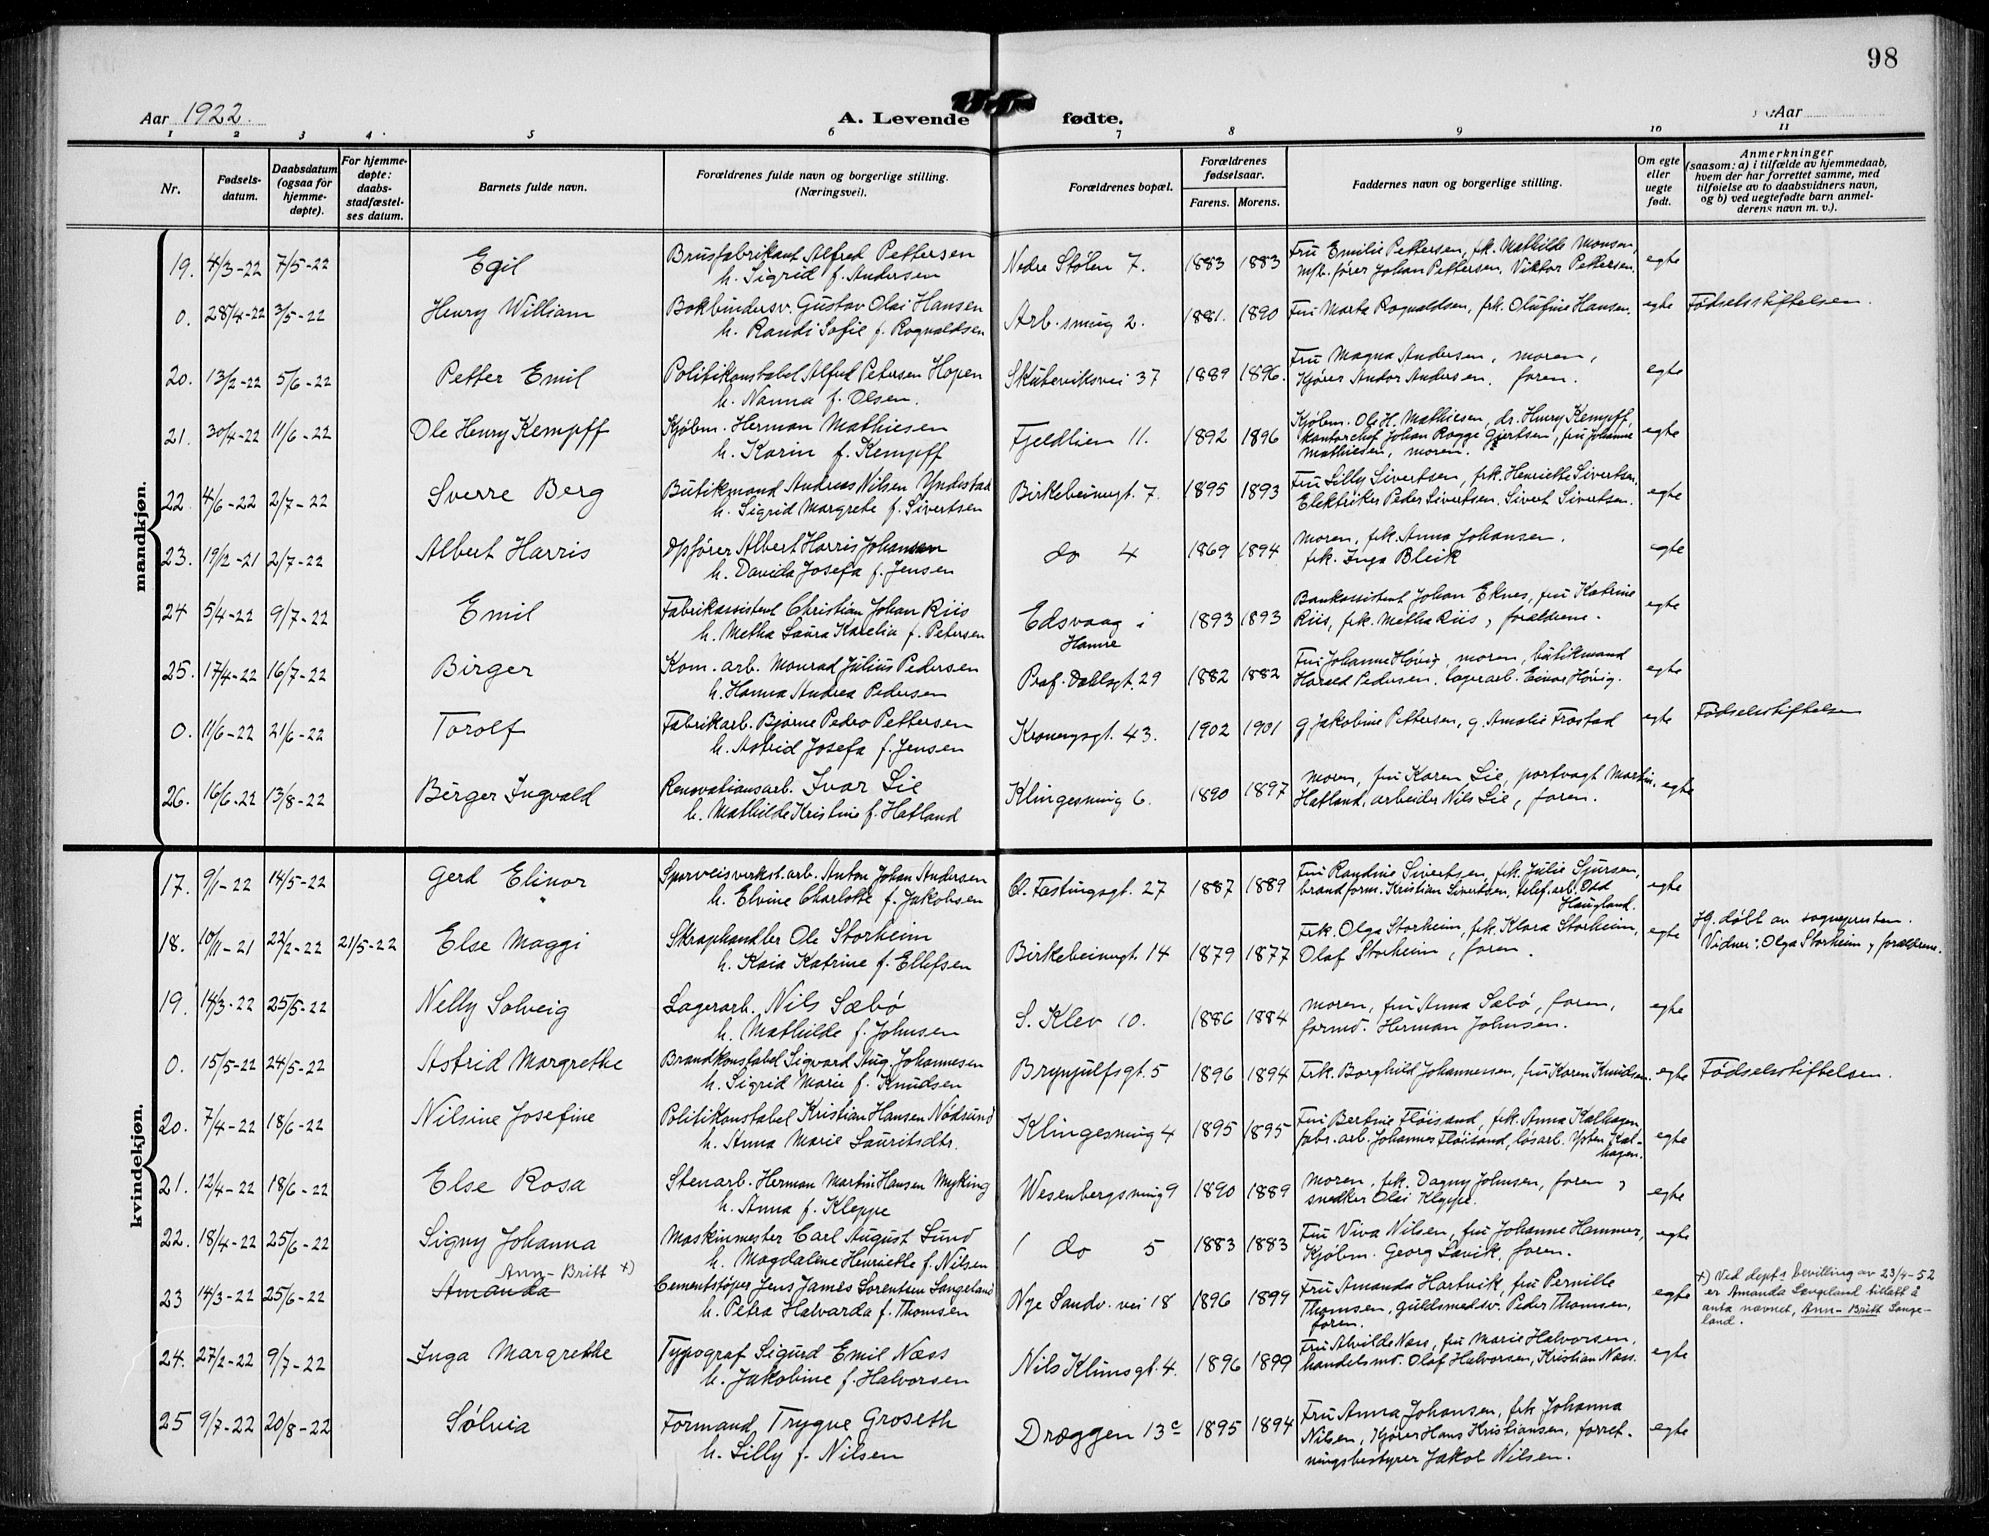 98
Aar 1922. A. Levende fødte. Aar
1 2 3 4 5 6 7 8 9 10 11
Nr. Fødsels-datum. Daabsdatum (ogsaa for hjemme-døpte). For hjemme-døpte: daabs-stadfæstel-ses datum. Barnets fulde navn. Forældrenes fulde navn og borgerlige stilling. (Næringsvei). Forældrenes bopæl. Forældrenes fødselsaar. Farens. Morens. Faddernes navn og borgerlige stilling. Om egte eller uegte født. Anmerkninger (saasom: a) i tilfælde av hjemmedaab, hvem der har forrettet samme, med tilføielse av to daabsvidners navn, og b) ved uegtefødte barn anmel-derens navn m. v.).
mandkjøn.
19. 4/3-22 7/5-22 Egil Brusfabrikant Alfred Pettersen Nedre Stølen 7. 1883 1883 Fru Emilie Pettersen, frk. Mathilde Monsen, egte
h. Sigrid f. Andersen fører Johan Pettersen, Viktor Pettersen.
0. 28/4-22 3/5-22 Henry William Bokbindersv. Gustav Olai Hansen Arb.smug 2. 1881. 1890 Fru Marta Rognaldsen, frk. Olufine Hansen. egte Fødselsstiftelsen.
h. Randi Sofie f. Rognaldsen
20. 13/2-22 5/6-22 Petter Emil Politikonstabel Alfred Petersen Hopen Skuteviksvei 37 1889 1896. Fru Magna Andersen, moren, egte
h. Nanna f. Olsen. Kjører Andor Andersen, faren.
21. 30/4-22 11/6-22 Ole Henry Kempff Kjøbm. Herman Mathiesen Fjeldlien 11. 1892 1896 Kjøbm. Ole H. Mathiesen, dr. Henry Kempff, egte
h. Karin f. Kempff kontorchef Johan Rogge Gjertsen, fru Johanne
Mathiesen, moren.
22. 4/6-22 2/7-22 Sverre Berg Butikmand Andreas Nilsen Yndestad Birkebeinergt. 7. 1895 1893 Fru Lilly Sivertsen, frk. Henriette Sivertsen, egte
h. Sigrid Margrete f. Sivertsen Elektriker Peder Sivertsen, Sivert Sivertsen.
23. 19/12-21 2/7-22 Albert Harris Opfører Albert Harris Johansen do 4 1869 1894 moren, frk. Anna Johansen. egte
h. Davida Josefa f. Jensen frk. Inga Bleik
24 5/4-22 9/7-22 Emil Fabrikassistent Christian Johan Riis Edsvaag i Hamre 1893 1893 Bankassistent Johan Eknes, fru Katrine egte
h. Metha Laura Karelia f. Petersen Riis, frk. Metha Riis, forældrene.
25. 17/4-22 16/7-22 Birger Kom. arb. Monrad Julius Pedersen Prof. Dahlsgt. 29 1882 1882 Fru Johanne Høvig, moren, butikmand egte
h. Hanna Andrea Pedersen Harald Pedersen, lagerarb. Einar Høvig.
0. 11/6-22 21/6-22 Torolf Fabrikarb. Bjarne Pedro Pettersen 43. 1902 1901 g. Jakobine Pettersen, g. Amalie Frostad egte Fødselsstiftelsen
h. Astrid Josefa f. Jensen
26. 16/6-22 13/8-22 Birger Ingvald Renovationsarb. Ivar Lie Klingesmug 6. 1890 1897 moren, fru Karen Lie, portvagt Martin egte
h. Mathilde Kristine f. Hatland Hatland, arbeider Nils Lie, faren.
kvindekjøn.
17. 9/1-22 14/5-22 Gerd Elinor Sporveisverkst. arb. Anton Johan Andersen Festingsgt. 27 1887 1889 Fru Randine Sivertsen, frk. Julie Sjursen, egte
h. Elvine Charlotte f. Jakobsen brandform. Kristian Sivertsen, telef. arb. Odd
Haugland.
18. 10/11-21 22/2-22 21/5-22 Else Maggi Skraphandler Ole Storheim Birkebeinergt. 14 1879 1877 Frk. Olga Storheim, frk. Klara Storheim, egte Hj. døbt av sognepresten.
h. Kaia Katrine f. Ellefsen Olaf Storheim, faren. Vidner: Olga Storheim, forældrene.
19. 14/3-22 25/5-22 Nelly Solveig Lagerarb. Nils Sæbø S. Klev 10. 1886 1884 moren, fru Anna Sæbø, faren, egte
h. Mathilde f. Johnsen formd. Herman Johnsen.
0. 15/5-22 24/5-22 Astrid Margrethe Brandkonstabel Sigvard Aug. Johannesen Brynjulfsgt. 5 1896 1894 Frk. Borghild Johannessen, fru Karen Knudsen. egte Fødselsstiftelsen.
h. Sigrid Marie f. Knudsen
20. 7/4-22 18/6-22 Nilsine Josefine Politikonstabel Kristian Hansen Nødsund Klingesmug 4 1895 1895 Fru Bertine Fløisand, frk. Anna Kalhagen, egte
h. Anna Marie Lauritsdtr. fabr. arb. Johannes Fløisand, løsarb. Kal-
hagen.
21. 12/4-22 18/6-22 Else Rosa Stenarb. Herman Martin Hansen Myking Wesenbergsmug 9 1890 1889 moren, frk. Dagny Johnsen, faren, egte
h. Anna f. Kleppe snedker Olai Kleppe.
22. 18/4-22 25/6-22 Signy Johanna Maskinmester Carl August Lund do 5 1883 1883 Fru Viva Nilsen, fru Johanne Hammer, egte
h. Magdalene Henriette f. Nilsen Kjøbm. Georg Lavik, faren.
Ann-Britt x)
23 14/3-22 25/6-22 Amanda Cementstøper Jens James Sorentein Langeland Nye Sandv. vei 18 1896 1899 Fru Amanda Hartvik, fru Pernille egte x) Ved dept.s bevilling av 23/4-52
h. Petra Halvarda f. Thomsen Thomsen, guldsmedsv. Peder Thomsen, er Amanda Langeland tillatt å
faren. anta navnet, Ann-Britt Lange-
land.
24. 27/2-22 9/7-22 Inga Margrethe Typograf Sigurd Emil Næss Nils Klimsgt. 4. 1896 1899 Fru Alvilde Næss, fru Marie Halvorsen, egte
h. Jakobine f. Halvorsen handelsmd. Olaf Halvorsen, Kristian Næss.
25 9/7-22 20/8-22 Sølvia Formand Trygve Groseth Dræggen 13c 1895 1894 Fru Anna Johansen, frk. Johanna egte
h. Lilly f. Nilsen Nilsen, kjører Hans Kristiansen, forret-
ningsbestyrer Jakob Nilsen.